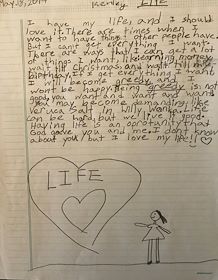 May 13, 2014
Kerley Life
I have my life, and I should
love it. There are times when I
want to have things other people have.
But I can't get everything I want.
There are ways that I can get a lot
of things I want, like earning money
wait till Christmas, and wait till my
birthday. If I get everything I want
I will become greedy and I
won't be happy. Being greedy is not
good, you want and want and want
you may become demanding like
Veruca Salt in Willy Wonka. Life
can be hard, but we live it good.
Having life is an oprotunity that
God gave you and me. I don't know
about you! but I love my life!!
LIFE